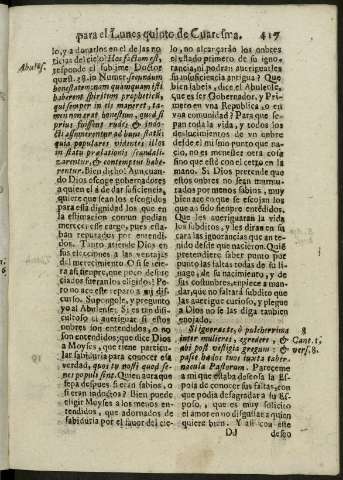 para el Lunes quinto de Cuaresma. 417
lo, y a donarlos en el de las no
ticias del cielo? Hoc factum est,
responde el sublime Doctor
quæst. 38. in Numer. secundum
honestatem: nam quamquam isti
haberent spiritum propheticũ,
qui semper in eis maneret, ta-
men non erat honestum, quod si
prius fuissent rudes & indo-
cti assumerentur ad hunc statũ:
quia populares videntes illos
in statu prælationis scandali-
zarentur, & contemptui habe-
rentur. Bien dicho! Aun cuan-
do Dios escoge gobernadores
a quien él á de dar suficiencia,
quiere que sean los escogidos
para esta dignidad los que en
la estimacion comun podian
merecer esse cargo, pues esta-
ban reputados por entendi-
dos. Tanto atiende Dios en
sus elecciones a las ventajas
del merecimiento. O si se iciera
asi siempre, que poco desdi-
ciados fueran los elegidos! Pe
ro no ace este reparo a mi dis-
curso. Supongole, y pregunto
yo al Abulense. Si es tan di-
ficultoso el averiguar si estos
ombres son entendidos, o no
son entendidos; que dice Dios
a Moyses, que tiene particu-
lar sabiduria para conocer esa
verdad, quos tu nosti quod se-
nes populi sint. Quien aura que
sepa despues si eran sabios, o
si eran indoctos? Bien puede
eligir Moyses a los menos en-
tendidos, que adornados de
sabiduria por el favor del cie-
Abulēs.
lo, no alcançarán los ombres
el estado primero de su igno-
rancia, ni podran averiguarles
su insuficiencia antigua? Que
bien labeis, dice el Abulense,
que es ser Gobernador, y Pri-
mero en vna Republica, o en
vna comunidad? Para que se-
pan toda la vida, y todos los
deslucimientos de vn ombre
desde el mismo punto que na-
cio, no es menester otra cosa
sino que esté con el cetro en la
mano. Si Dios pretende que
estos ombres no sean murmu-
rados por menos sabios, muy
bien ace en que se escojan los
que an sido siempre entendidos.
Que les averiguaran la vida
los subditos, y les diran en su
cara las ignorancias que an te-
nido desde que nacieron. Quiẽ
pretendiere saber punto por
punto las faltas todas de su li-
naje, de su nacimiento, y de
sus costumbres, empiece a man-
dar, que no faltará subdito que
las averigue curioso, y plegue
a Dios no se las diga tambien
enojado.
Si ignoras te, ò pulcherrima
inter mulieres, egredere, &
abi post vestigia gregum: &
pasce hædos tuos iuxta taber-
nacula Pastorum. Pareceme
a mi que estaba deseosa la Es-
posa de conocer sus faltas, con
que podia desagradar a su Es-
poso, y que es muy solicito
el amor en no disgustar a quien
quiere bien. Y asi con este
Dd deseo
8
Cant. 1.
vers. 8.